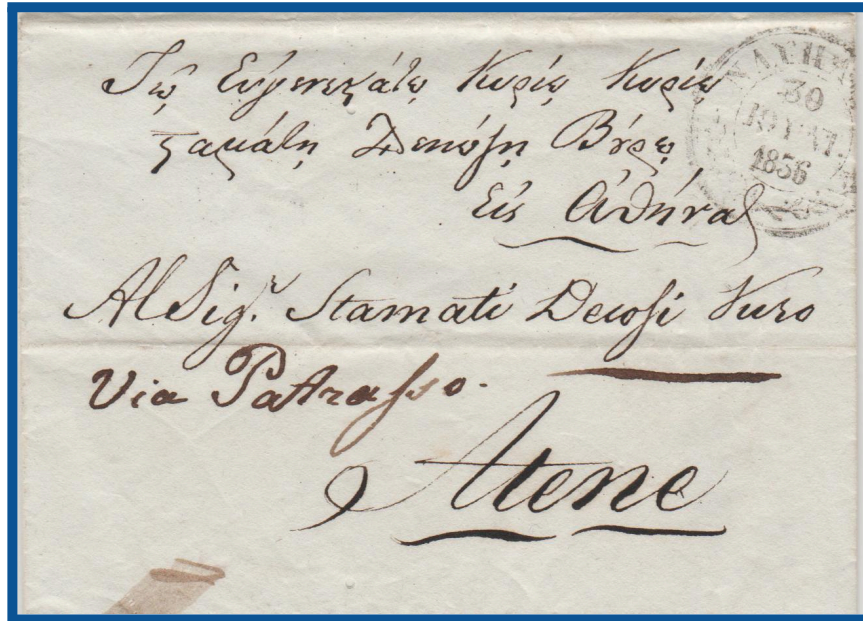 Τῷ Εὐγενεστάτῳ Κυρίῳ Κυρίῳ
Σταμάτῃ Δεκόζῃ Βούρῳ
30
ΙΟΥΛ.
1836
Εἰς Ἀθήνας
Al Sigr. Stamati Decosi Vuro
Via Patrasso.
Atene